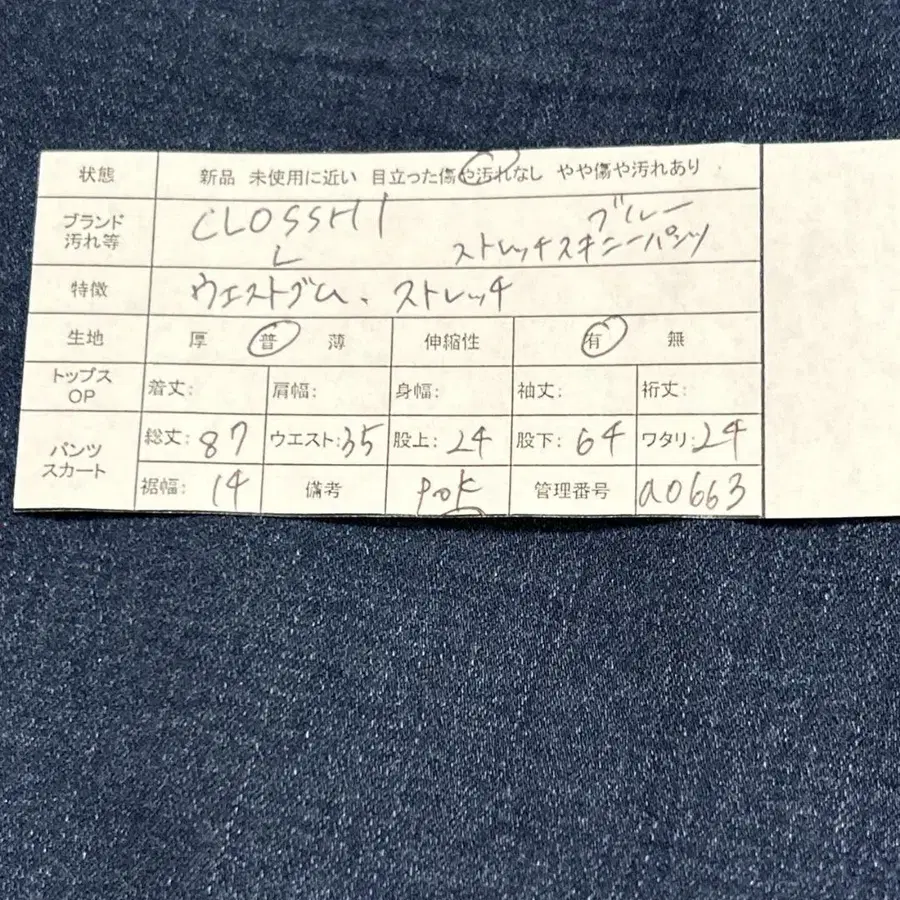 状態 新品 未使用に近い 目立った傷や汚れなし やや傷や汚れあり
ブランド 汚れ等 CLOSSHI L ブルー ストレッチスキニーパンツ
特徴 ウエストゴム、ストレッチ
生地 厚 普 薄 伸縮性 有 無
トップス OP 着丈: 肩幅: 身幅: 袖丈: 裄丈:
パンツ スカート 総丈: 87 ウエスト: 35 股上: 24 股下: 64 ワタリ: 24
裾幅: 14 備考 管理番号 a0663